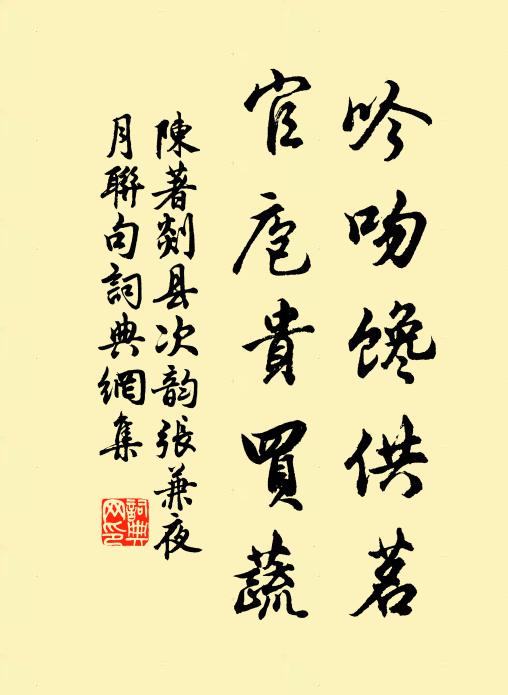 吟吻馋供茗
官庖貴買蔬
陳著剡县次韵張兼夜
月聯句詞典網集
詞典网印